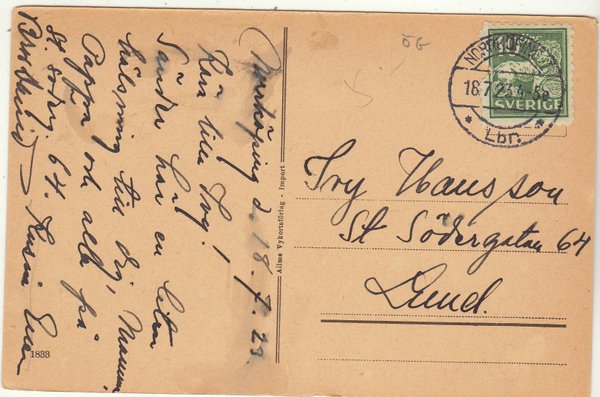 Norrköping d. 18. 7. 23.
Kära lilla Ivy!
Sänder här en liten
hälsning till dig, Mamma
Pappa och alla på
St. Söderg. 64. Kusin
1833
Ailma Vykortsförlag - Import
ÖG
NORRKÖPING
18.7.23
Lbr.
SVERIGE
Ivy Hansson
St Södergatan 64
Lund.